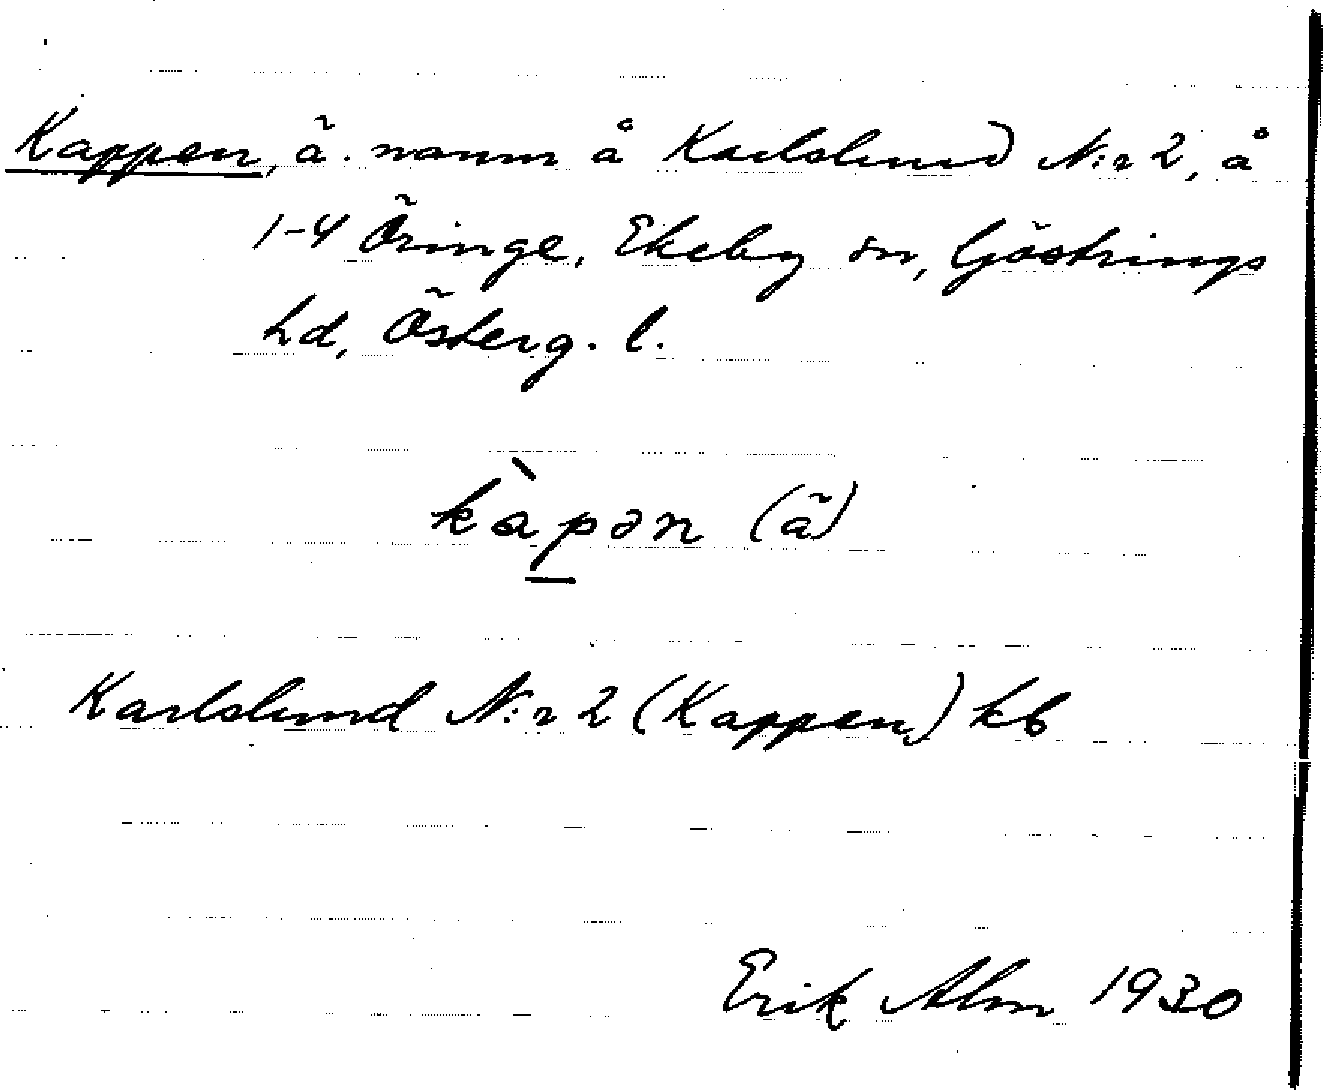 Kappen, ä. namn å Karlslund N:r 2, å
1-4 Öringe, Ekeby sn, Göstrings
hd, Österg. l.
kàpən (ä)
Karlslund N:r 2 (Kappen) kb
Erik Alm 1930